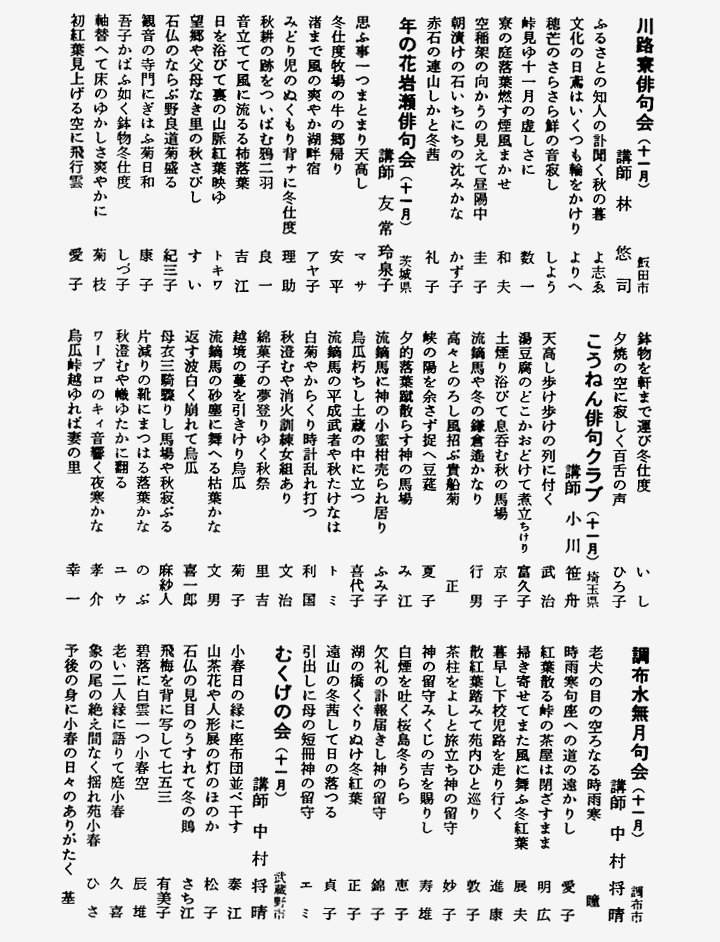 川路寮俳句会(十一月)
飯田市
講師 林 悠司
ふるさとの知人の訃聞く秋の暮 よ志ゑ
文化の日鳶はいくつも輪をかけり よりへ
穂芒のさらさら鮮の音寂し しよう
峠見ゆ十一月の虚しさに 数一
寮の庭落葉燃す煙風まかせ 和夫
空稲架の向かうの見えて昼陽中 圭子
朝漬けの石いちにちの沈みかな かず子
赤石の連山しかと冬茜 礼子
年の花岩瀬俳句会(十一月)
茨城県
講師 友常玲泉子
思ふ事一つまとまり天高し マサ
冬仕度牧場の牛の郷帰り 安平
渚まで風の爽やか湖畔宿 アヤ子
みどり児のぬくもり背ナに冬仕度 理助
秋耕の跡をついばむ鴉二羽 良一
音立てて風に流るる柿落葉 吉江
日を浴びて裏の山脈紅葉映ゆ トキワ
望郷や父母なき里の秋さびし すい
石仏のならぶ野良道菊盛る 紀三子
観音の寺門にぎはふ菊日和 康子
吾子かばふ如く鉢物冬仕度 しづ子
軸替へて床のゆかしさ爽やかに 菊枝
初紅葉見上げる空に飛行雲 愛子
鉢物を軒まで運び冬仕度 いし
夕焼の空に寂しく百舌の声 ひろ子
こうねん俳句クラブ(十一月)
埼玉県
講師 小川笹舟
天高し歩け歩けの列に付く 武治
湯豆腐のどこかおどけて煮立ちけり 富久子
土煙り浴びて息呑む秋の馬場 京子
流鏑馬や冬の鎌倉遙かなり 行男
高々とのろし風招ぶ貴船菊 正
峡の陽を余さず捉へ豆莚 夏子
夕的落葉蹴散らす神の馬場 み江
流鏑馬に神の小蜜柑売られ居り ふみ子
烏瓜朽ちし土蔵の中に立つ 喜代子
流鏑馬の平成武者や秋たけなは トミ
白菊やからくり時計乱れ打つ 利国
秋澄むや消火訓練女組あり 文治
綿菓子の夢登りゆく秋祭 里吉
越境の蔓を引きけり烏瓜 菊子
流鏑馬の砂塵に舞へる枯葉かな 文男
返す波白く崩れて烏瓜 喜一郎
母衣三騎驟りし馬場や秋寂ぶる 麻紗人
片減りの靴にまつはる落葉かな のぶ
秋澄むや幟ゆたかに翻る ユウ
ワープロのキィ音響く夜寒かな 孝介
烏瓜峠越ゆれば妻の里 幸一
調布水無月句会(十一月)
調布市
講師 中村将晴
老犬の目の空ろなる時雨寒 瞳
時雨寒句座への道の遠かりし 愛子
紅葉散る峠の茶屋は閉ざすまま 明広
掃き寄せてまた風に舞ふ冬紅葉 展夫
暮早し下校児路を走り行く 進康
散紅葉踏みて苑内ひと巡り 敦子
茶柱をよしと旅立ち神の留守 妙子
神の留守みくじの吉を賜りし 寿雄
白煙を吐く桜島冬うらら 恵子
欠礼の訃報届きし神の留守 錦子
湖の橋くぐりぬけ冬紅葉 正子
遠山の冬茜して日の落つる 貞子
引出しに母の短冊神の留守 エミ
むくげの会(十一月)
武蔵野市
講師 中村将晴
小春日の縁に座布団並べ干す 泰江
山茶花や人形展の灯のほのか 松子
石仏の見目のうすれて冬の鵙 さち江
飛梅を背に写して七五三 有美子
碧落に白雲一つ小春空 辰雄
老い二人縁に語りて庭小春 久喜
象の尾の絶え間なく揺れ苑小春 ひさ
予後の身に小春の日々のありがたく 基